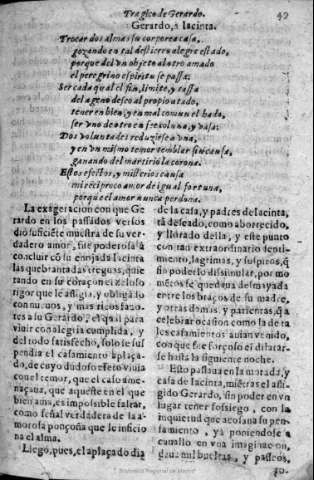 Tragico de Gerardo. 49
Gerardo, a Iacinta.
Trocar dos almas su corporea casa,
gozando en tal destierro alegre estado,
porque del vn objeto al otro amado
el peregrino espiritu se passa;
Ser cada qual el fin, limite, y tassa
del ageno deseo al propio vtado,
tener en bien, y en mal comun el hado,
ser vno de otro en fee coluna, y vasa:
Dos voluntades reduzirse a vna,
y en vn mismo temor temblar sin causa,
ganando del martirio la corona.
Estos efectos, y misterios causa
mi reciproco amor de igual fortuna,
porque el amor nunca perdona.
La exageracion con que Ge-
rardo en los passados versos
dio suficiete muestra de su ver-
dadero amor, fue poderosa a
concluir cõ su enojada Iacinta
las quebrantadas treguas, qui-
tando en su coraçon el zeloso
rigor que le afligia, y obligãdo
con nueuos, y mas ricos fauo-
res a su Gerardo, el qual para
viuir con alegria cumplida, y
del todo satisfecho, solo se sus
pendia el casamiento aplaça-
do, de cuyo dudoso efeto viuia
con el temor, que el caso ame-
naçaua, que aqueste en el que
bien ama, es impossible faltar,
como señal verdadera de la a-
morosa ponçoña que le inficio
na el alma.
Llegó, pues, el aplaçado dia
de la casa, y padres de Iacinta,
tã deseado, como aborrecido,
y llorado della, y este punto
con tan extraordinario senti-
miento, lagrimas, y suspiros, q̃
sin poderlo dissimular, por mo
mẽtos se quedaua desmayada
entre los braços de su madre,
y otras damas, y parientas, q̃ a
celebrar ocasion como la de ta
les casamientos auian venido,
con que fue forçoso el dilatar-
se hasta la siguiente noche.
Esto passaua en la morada, y
casa de Iacinta, miẽtras el afli-
gido Gerardo, sin poder en vn
lugar tener sossiego, con la
inquietud que acosaua su pen-
samiento, ya poniendose a
cauallo en vna imaginacion,
daua mil bueltas, y passeos,
Biblioteca Regional de Madrid